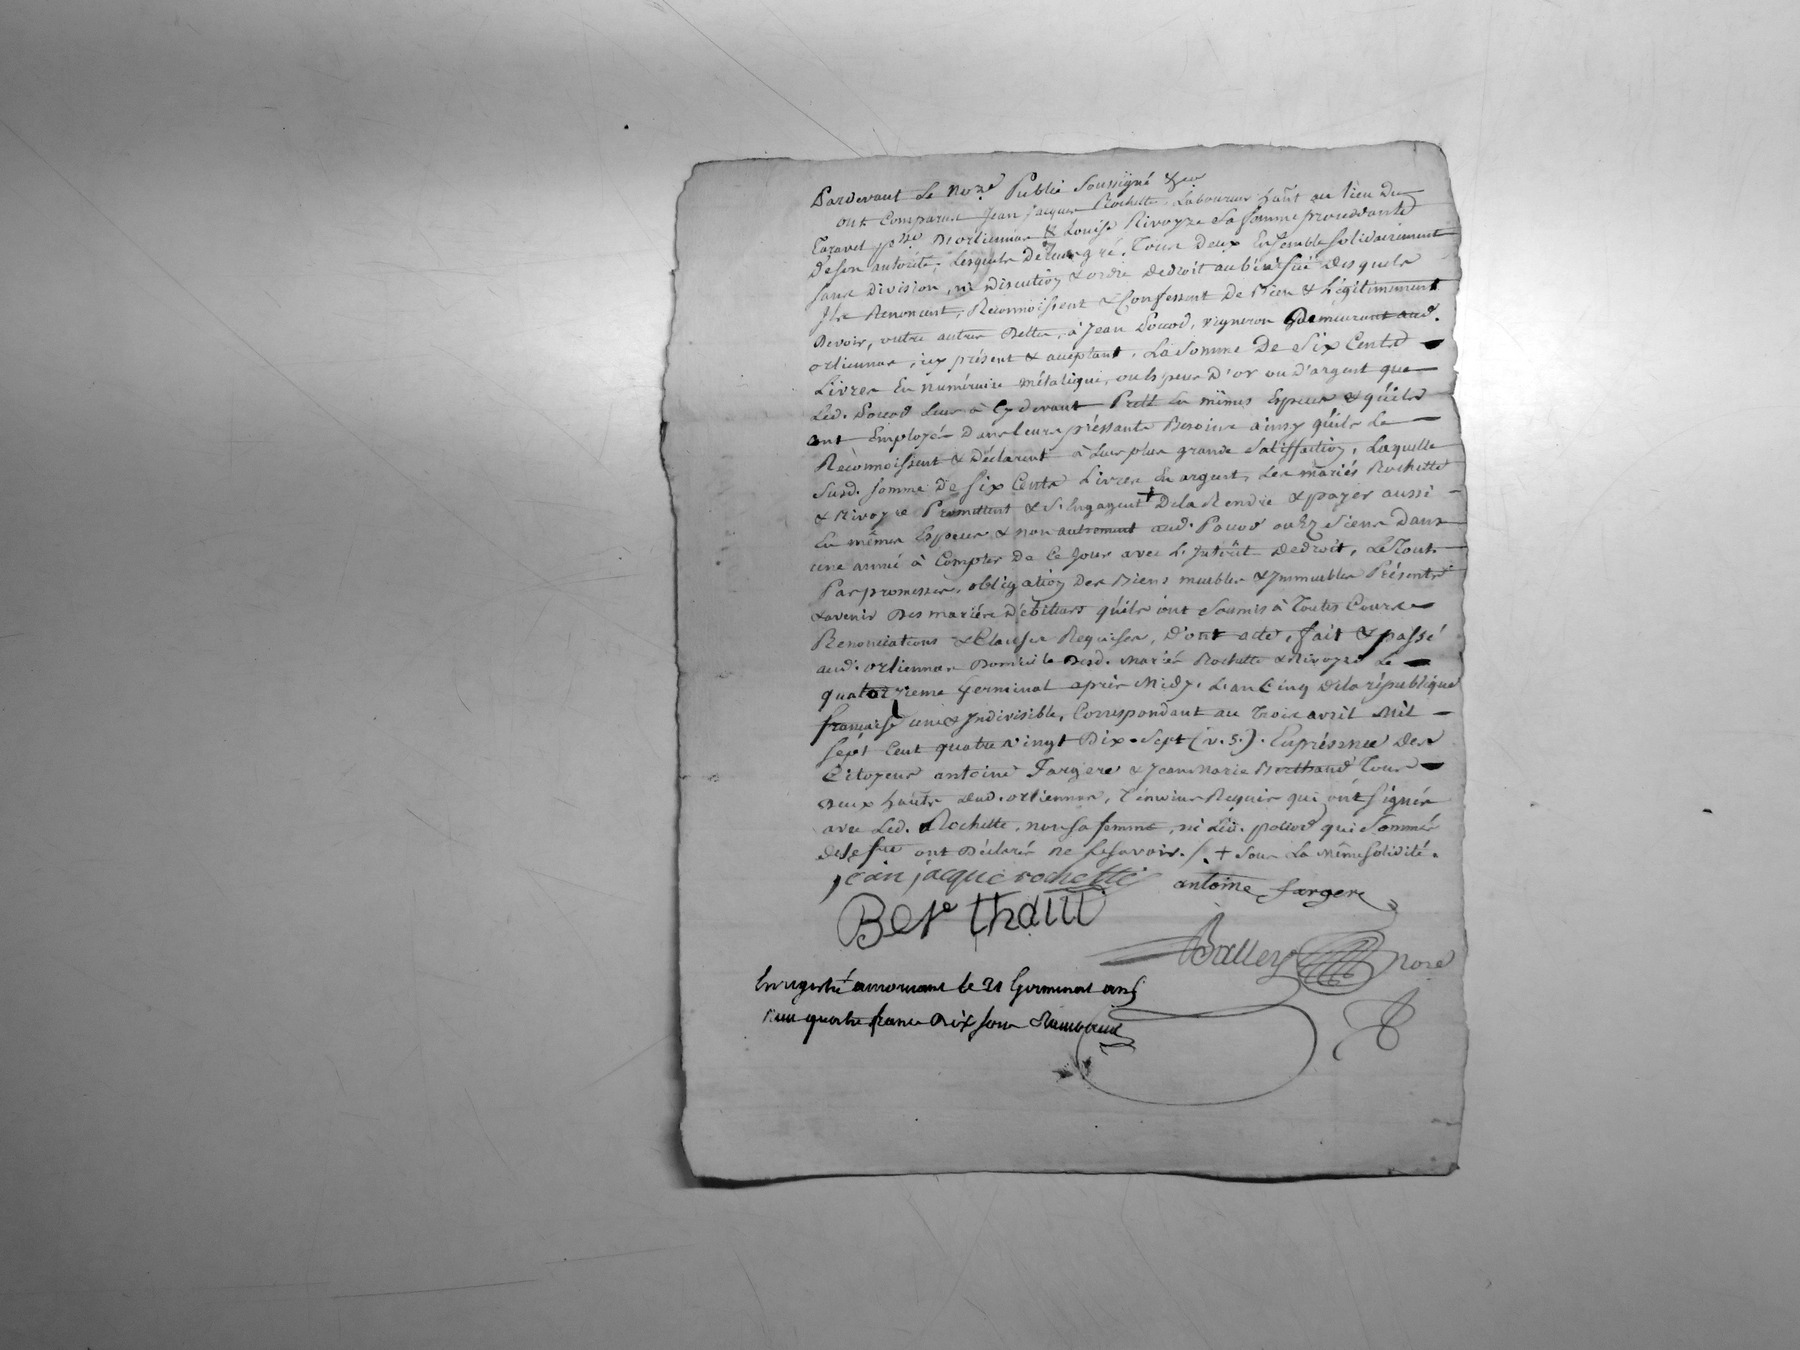 Pardevant Le No.re Public Soussigné &
ont Comparus Jean Jacques Rochette, Laboureur hañt au lieu du
Garavet p.sse D'orliennas & Louise Rivoyre Sa femme procedante
de son autorité, Lesquels De leur gré, Tous deux Ensemble solidairement
sans Division, ni Discution & ordre De droit au bénéfice Desquels
Ils Renoncent, Reconnoissent & Confessent De Bien & Légitimement
Devoir, outre autres Dettes, à Jean Poucod, vigneron Demeurant aud.
orliennas, icy présent & aceptant, La Somme De Six Cents
Livres En numéraire métalique, ou Espèces D'or ou d'argent que
Led. Poucod Leur à Cy devant Prêté En mêmes Espèces & quils
ont Employés Dans leurs préssants Besoins ainsy quils Le
Reconnoissent & Déclarent à Leur plus grande Satisfaction, Laquelle
Susd. somme De Six Cents Livres En argent, Les mariés Rochette
& Rivoyre Promettent & S'Engagent + De la Rendre & payer aussi
En mêmes Espèces & non autrement aud. Poucod ou Ez Siens Dans
une année à Compter De Ce Jour avec L'Intérêt De droit, Le Tout
Par promesses, obligation Des Biens meubles & Immeubles Présents
& avenir Des mariés Débiteurs quils ont Soumis à Toutes Cours
Renonciations & Clauses Requises, D'ont acte, fait & passé
aud. orliennas Domicile Desd. mariés Rochette & Rivoyre Le
quatorzieme Germinal après Midy, L'an Cinq De la république
française une & Indivisible, Correspondant au Trois avril Mil
sept Cent quatre vingt Dix-Sept (v. S.). En présence Des
Citoyens antoine Fargere & Jean Marie Berthaud Tous
deux hañts aud. orliennas, Témoins Requis qui ont Signés
avec Led. Rochette, non sa femme, ni Led. poucod qui Sommés
de Le f.re ont Déclarés ne Le Savoir. /. + Sous La même Solidité.
jean jacque rochette antoine fargere
Berthaut
Balley No.re
Enregistré a mornant le 21 Germinal an 5
Reçu quatre francs Dix sous